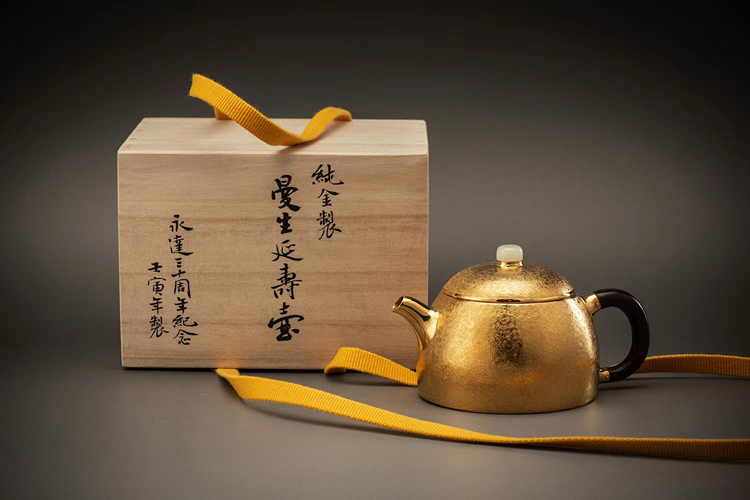 純金製
曼生延壽壺
永達三十周年紀念
壬寅年製